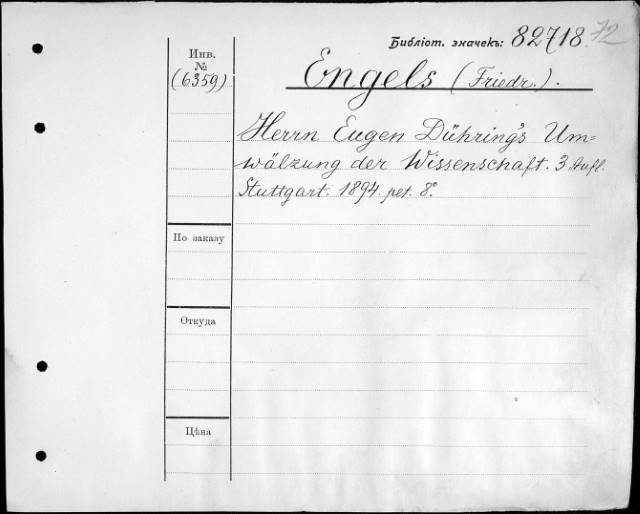 Библіот. значекъ: 82718 72
Инв.
№
(6359)
Engels (Friedr.).
Herrn Eugen Dühring's Um=
wälzung der Wissenschaft. 3 Aufl.
Stuttgart. 1894. pet. 8°.
По заказу
Откуда
Цѣна